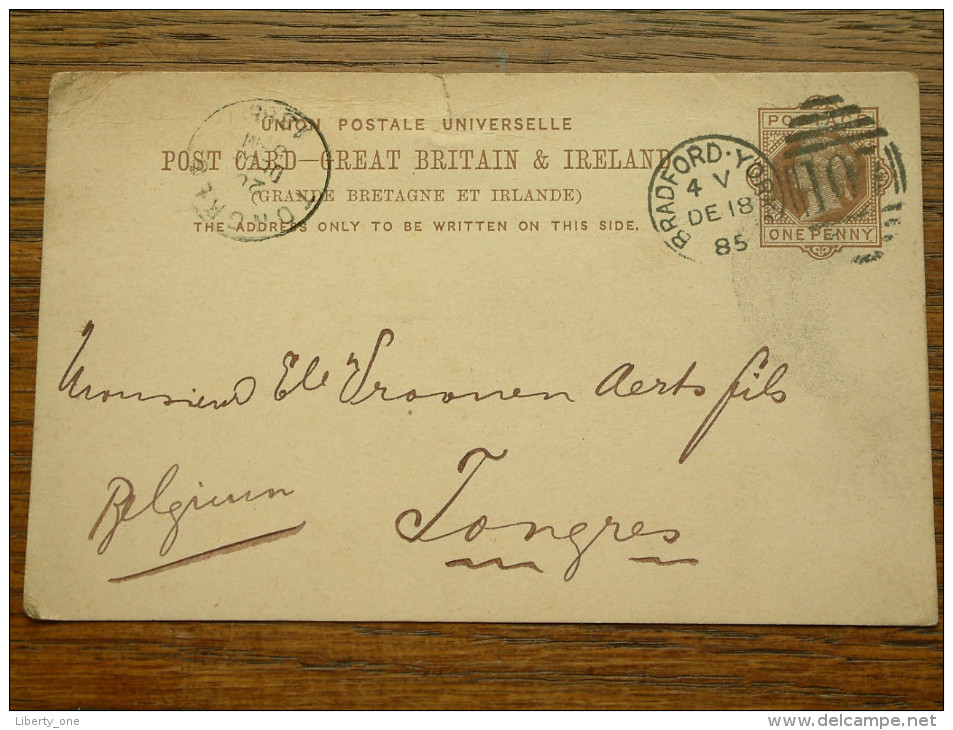 UNION POSTALE UNIVERSELLE
POST CARD—GREAT BRITAIN & IRELAND
(GRANDE BRETAGNE ET IRLANDE)
THE ADDRESS ONLY TO BE WRITTEN ON THIS SIDE.
POSTAGE
ONE PENNY
BRADFORD·YORKS
4 V
DE 18
85
Monsieur Ele Vroonen Aerts fils
Tongres
Belgium
Liberty_one
www.delcampe.net